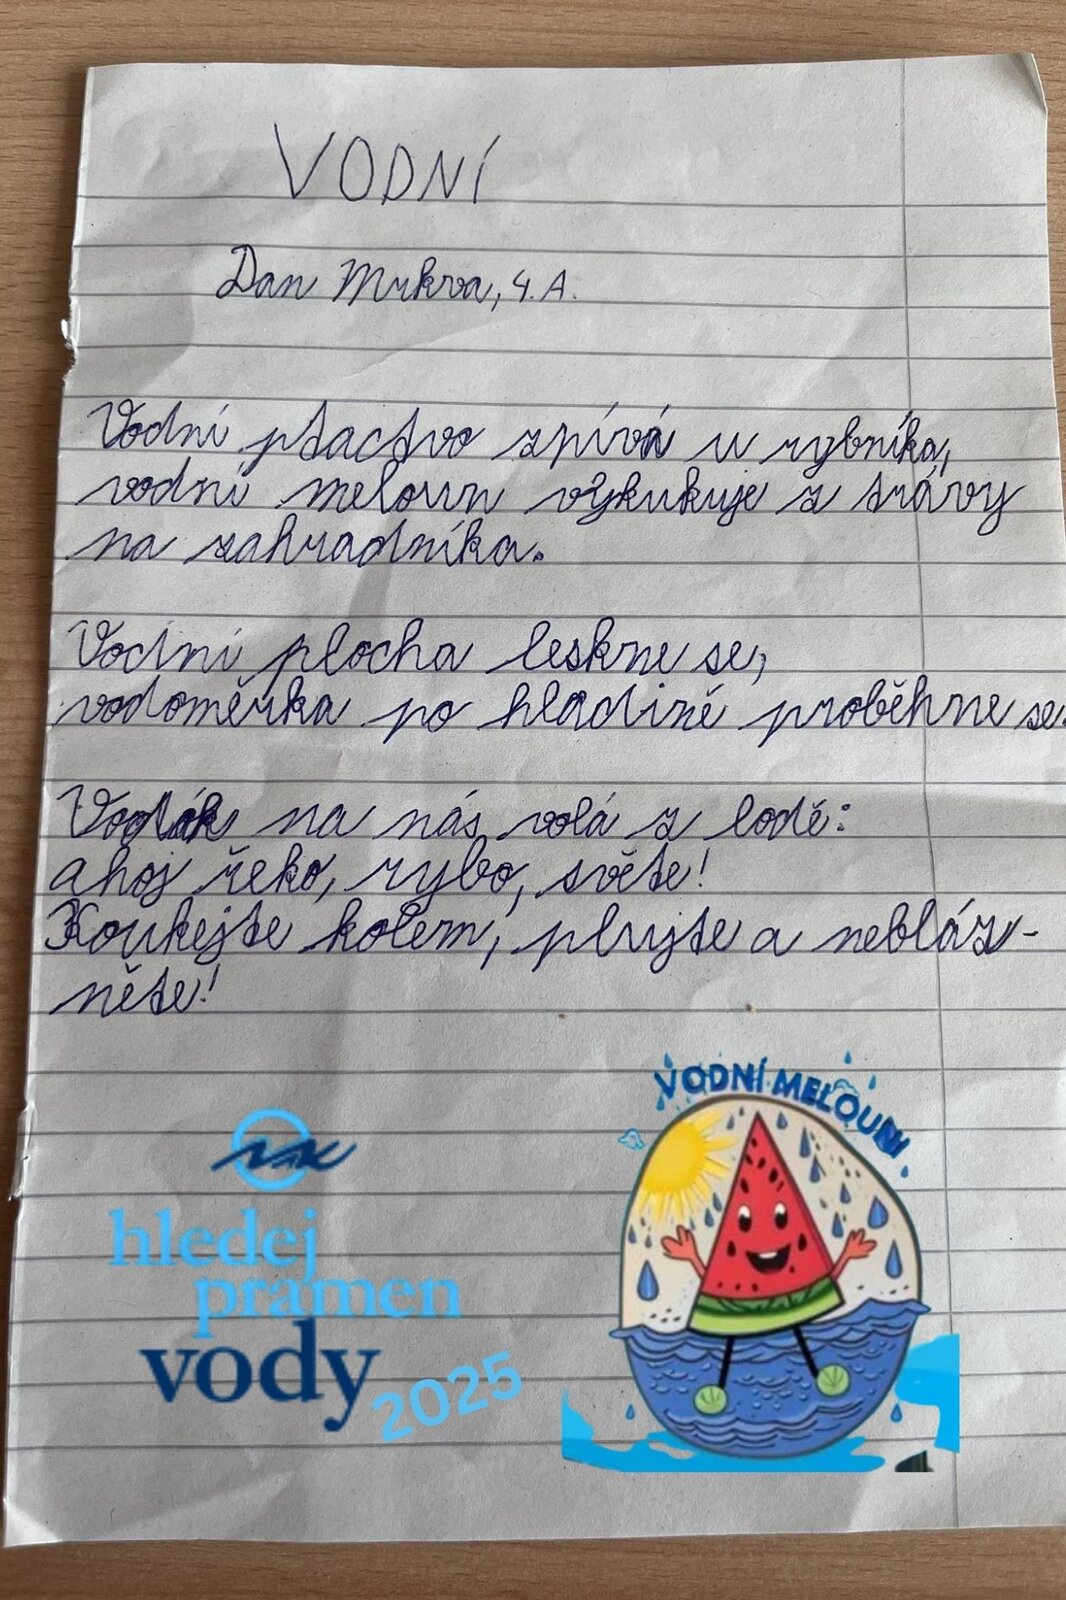 VODNÍ
Dan Mrkva, 4. A.
Vodní ptactvo zpívá u rybníka,
vodní meloun vykukuje z trávy
na zahradníka.
Vodní plocha leskne se,
vodoměrka po hladině proběhne se.
Vodák na nás volá z lodě:
ahoj řeko, rybo, světe!
Koukejte kolem, plujte a nebláz-
něte!
VODNÍ MELOUNI
hledej
pramen
vody
2025